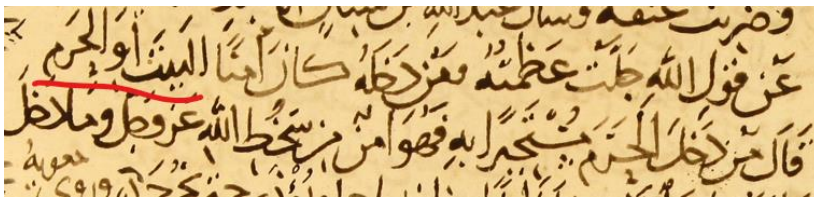 وضربت عنقه وسأل عبد الله بن سنان
عن قول الله جلت عظمته ومن دخله كان امنا البيت او الحرم
قال من دخل الحرم مستجيرا به فهو امن من سخط الله عز وجل وما دخل